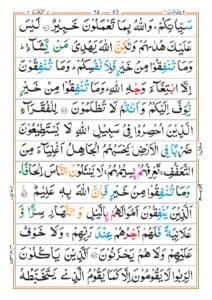 سَيِّاٰتِكُمْ ؕ وَاللّٰهُ بِمَا تَعْمَلُوْنَ خَبِيْرٌ ۝ لَيْسَ
عَلَيْكَ هُدٰىهُمْ وَلٰكِنَّ اللّٰهَ يَهْدِىْ مَنْ يَّشَآءُ ؕ
وَمَا تُنْفِقُوْا مِنْ خَيْرٍ فَلِاَنْفُسِكُمْ ؕ وَمَا تُنْفِقُوْنَ
اِلَّا ابْتِغَآءَ وَجْهِ اللّٰهِ ؕ وَمَا تُنْفِقُوْا مِنْ خَيْرٍ
يُّوَفَّ اِلَيْكُمْ وَاَنْتُمْ لَا تُظْلَمُوْنَ ۝ لِلْفُقَرَآءِ
الَّذِيْنَ اُحْصِرُوْا فِىْ سَبِيْلِ اللّٰهِ لَا يَسْتَطِيْعُوْنَ
ضَرْبًا فِى الْاَرْضِ يَحْسَبُهُمُ الْجَاهِلُ اَغْنِيَآءَ مِنَ
التَّعَفُّفِ ۚ تَعْرِفُهُمْ بِسِيْمٰهُمْ ۚ لَا يَسْئَلُوْنَ النَّاسَ اِلْحَافًا ؕ
وَمَا تُنْفِقُوْا مِنْ خَيْرٍ فَاِنَّ اللّٰهَ بِهٖ عَلِيْمٌ ۝
اَلَّذِيْنَ يُنْفِقُوْنَ اَمْوَالَهُمْ بِالَّيْلِ وَالنَّهَارِ سِرًّا وَّ
عَلَانِيَةً فَلَهُمْ اَجْرُهُمْ عِنْدَ رَبِّهِمْ ۚ وَلَا خَوْفٌ
عَلَيْهِمْ وَلَا هُمْ يَحْزَنُوْنَ ۝ اَلَّذِيْنَ يَاْكُلُوْنَ
الرِّبٰوا لَا يَقُوْمُوْنَ اِلَّا كَمَا يَقُوْمُ الَّذِىْ يَتَخَبَّطُهُ